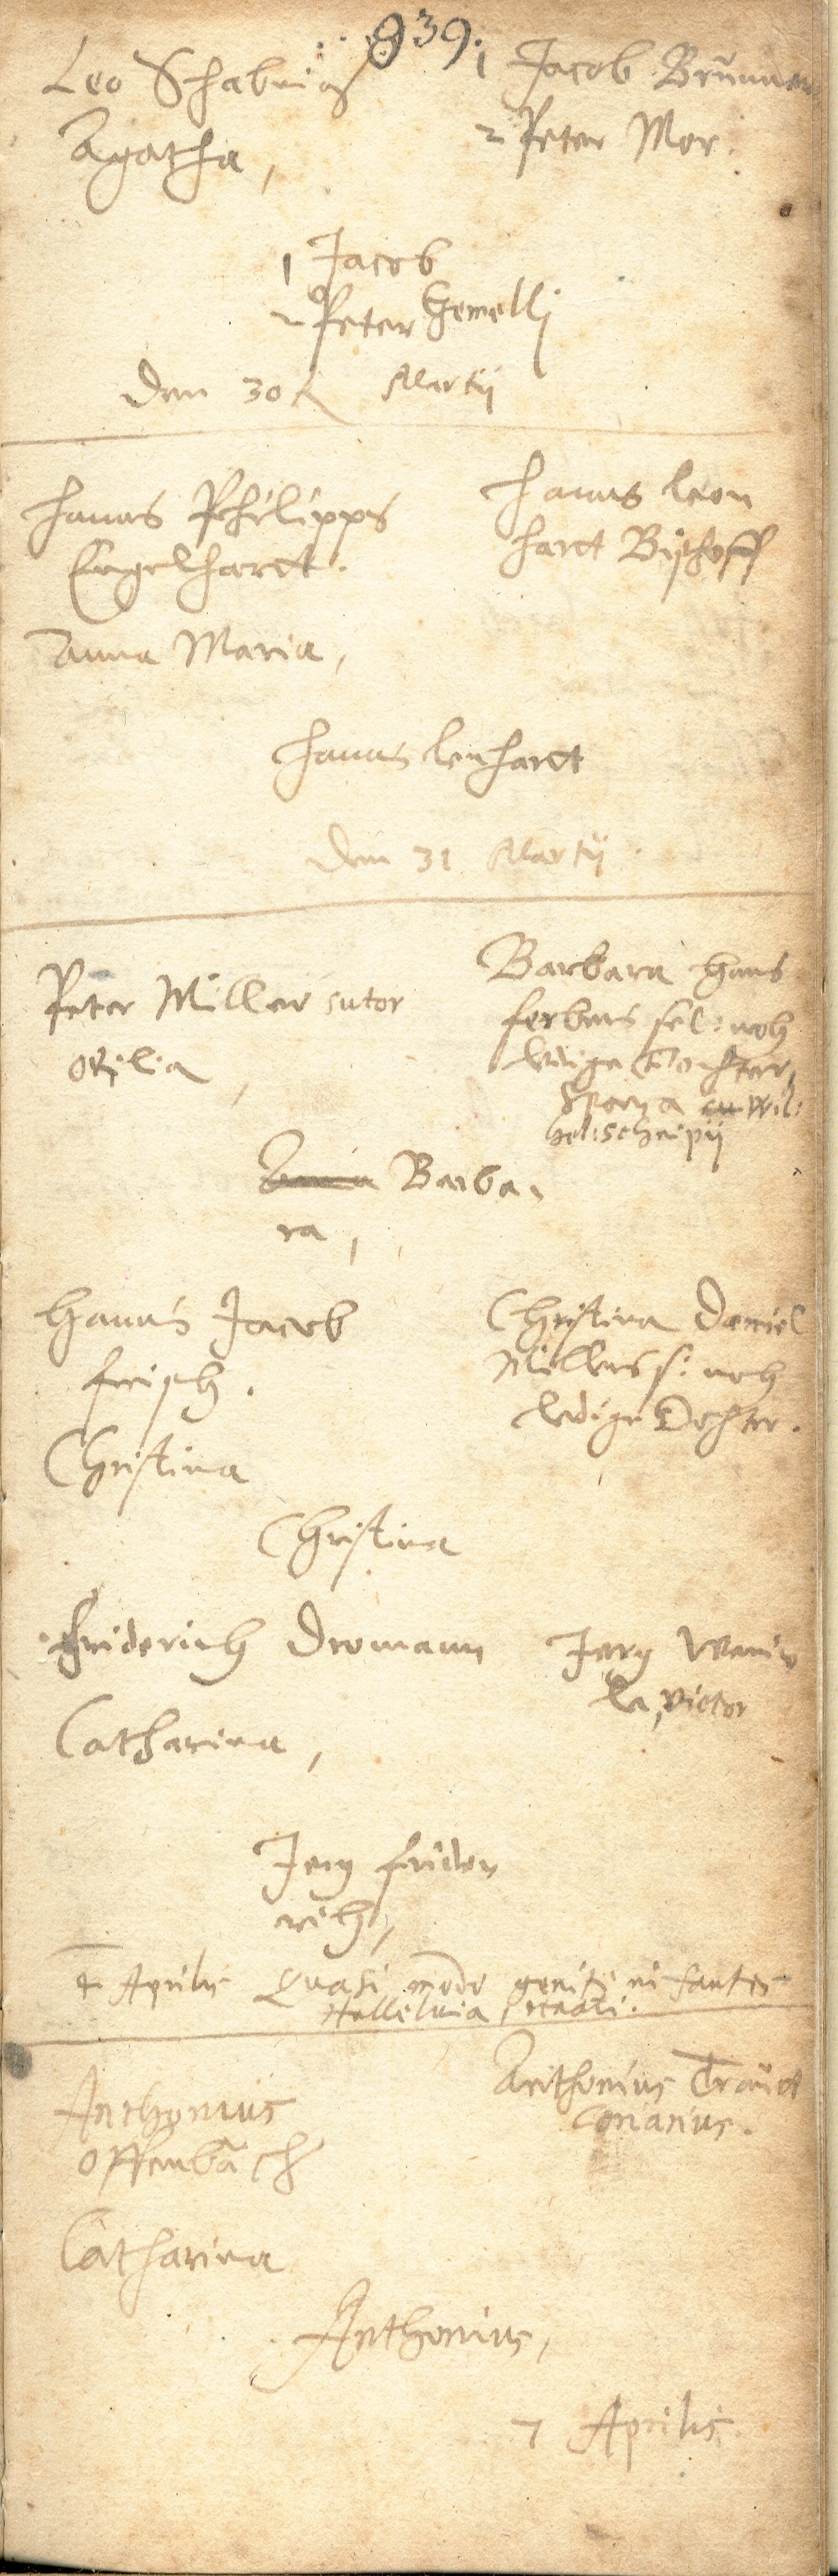 839.
Leo Schabinger
Agatha,
1 Jacob Brunner
2 Peter Mor.
1 Jacob
2 Peter Gemelli
Den 30 Martij
Hanns Philipps
Engelhardt.
Anna Maria,
Hanns Leon
hardt Bischoff
Hanns Lenhardt
Den 31 Martij
Peter Miller sutor
Otilia,
Barbara Hans
ferbers sel: noch
ledige Tochter,
Wil:
Anna Barba
ra,
Hanns Jacob
frisch.
Christina
Christina Daniel
Millers s: noch
ledige Dochter.
Christina
Friderich Dromann
Catharina,
Jerg
victor
Jerg frider
rich,
4 Aprilis Quasi modo geniti infantes
Halleluia
Anthonius
Offenbach
Catharina
Anthonius Traudt
Anthonius,
7 Aprilis